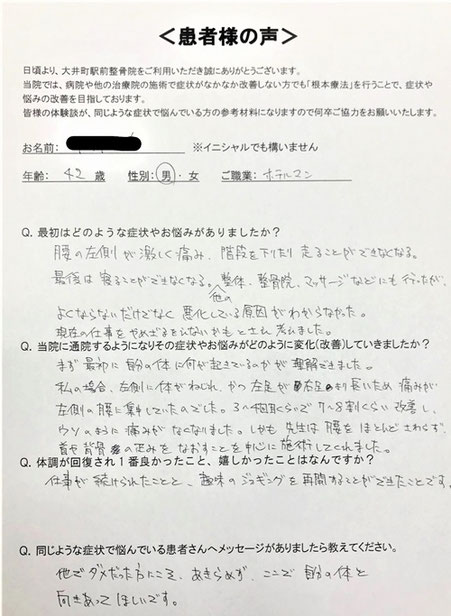 ＜患者様の声＞
日頃より、大井町駅前整骨院をご利用いただき誠にありがとうございます。
当院では、病院や他の治療院の施術で症状がなかなか改善しない方でも「根本療法」を行うことで、症状や
悩みの改善を目指しております。
皆様の体験談が、同じような症状で悩んでいる方の参考材料になりますので何卒ご協力をお願いいたします。
お名前： ※イニシャルでも構いません
年齢： 42 歳 性別：男・女 ご職業： ホテルマン
Q. 最初はどのような症状やお悩みがありましたか？
腰の左側が激しく痛み、階段を下りたり走ることができなくなる。
最後は寝ることができなくなる。整体、整骨院、マッサージなどにも行ったが、
他の
よくならないだけでなく悪化している原因がわからなかった。
現在の仕事をやめざるをえないかもとさえ考えました。
Q. 当院に通院するようになりその症状やお悩みがどのように変化（改善）していきましたか？
まず最初に自分の体に何が起きているのかが理解できました。
私の場合、左側に体がねじれ、かつ左足が右足より長いため痛みが
左側の腰に集中していたのでした。3ヶ月くらいで7～8割くらい改善し、
ウソのように痛みがなくなりました。しかも先生は腰をほとんどさわらず、
首や背骨の歪みをなおすことを中心に施術してくれました。
Q. 体調が回復され１番良かったこと、嬉しかったことはなんですか？
仕事が続けられたことと、趣味のジョギングを再開することができたことです。
Q. 同じような症状で悩んでいる患者さんへメッセージがありましたら教えてください。
他でダメだった方にこそ、あきらめず、ここで自分の体と
向きあってほしいです。